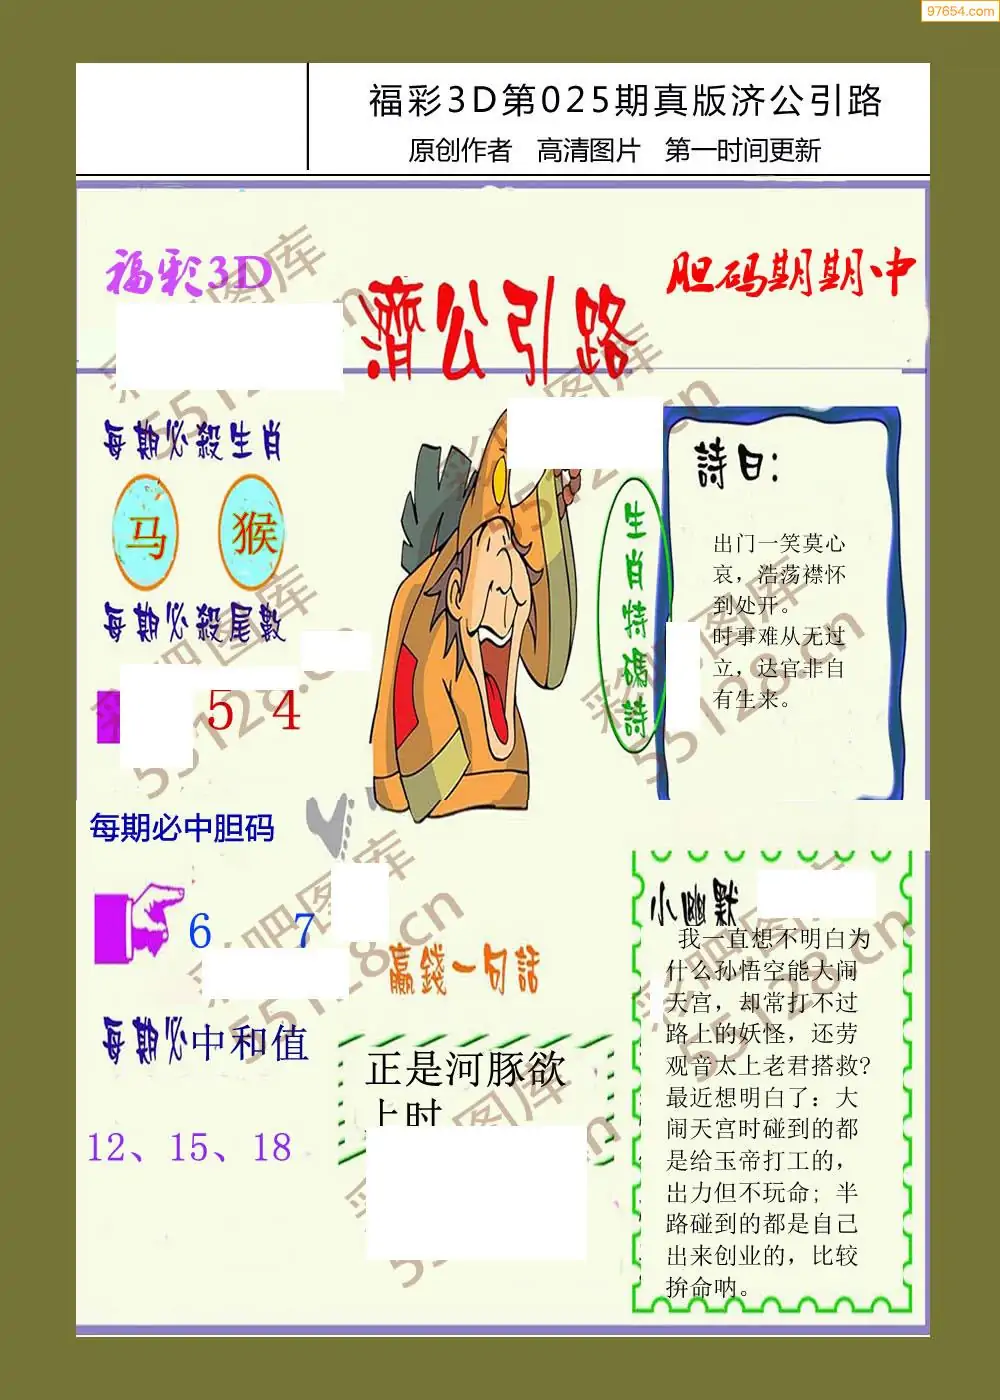 97654.com
福彩3D第025期真版济公引路
原创作者 高清图片 第一时间更新
福彩3D
濟公引路
胆码期期中
每期必殺生肖
马 猴
每期必殺尾數
5 4
生肖特碼詩
詩曰:
出门一笑莫心
哀，浩荡襟怀
到处开。
时事难从无过
立，达官非自
有生来。
每期必中胆码
6 7
每期必中和值
12、15、18
赢錢一句話
正是河豚欲
上时
小幽默
我一直想不明白为
什么孙悟空能大闹
天宫，却常打不过
路上的妖怪，还劳
观音太上老君搭救?
最近想明白了：大
闹天宫时碰到的都
是给玉帝打工的，
出力但不玩命; 半
路碰到的都是自己
出来创业的，比较
拚命呐。
彩吧图库
55128.cn
彩吧图库
55128.cn
彩吧图库
55128.cn
彩吧图库
55128.cn